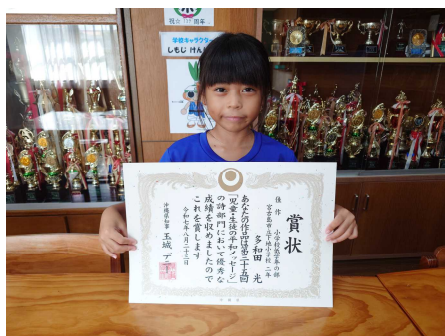 祝☆
周年
学校キャラクター
しもじ けん
賞状
佳作 小学校低学年の部
宮古島市立下地小学校 二年
多和田 光
あなたの作品は第三十五回
「児童・生徒の平和メッセージ」
の詩部門において優秀な
成績を収めましたので
これを賞します
令和七年八月二十三日
沖縄県知事 玉城 デニー